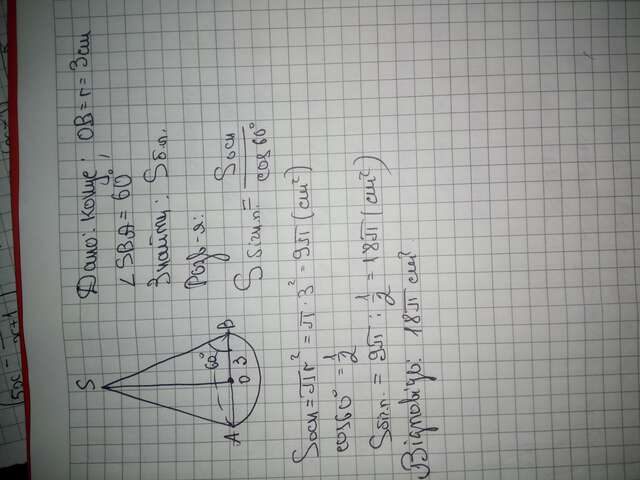 Дано: конус; OB = r = 3 см
∠SBA = 60°,
Знайти: Sб.п.
Розв-я:
Sбіч.п. = Sосн / cos 60°
S
60°
A O 3 B
Sосн = πr² = π · 3² = 9π (см²)
cos 60° = 1/2
Sбіч.п. = 9π : 1/2 = 18π (см²)
Відповідь: 18π см²